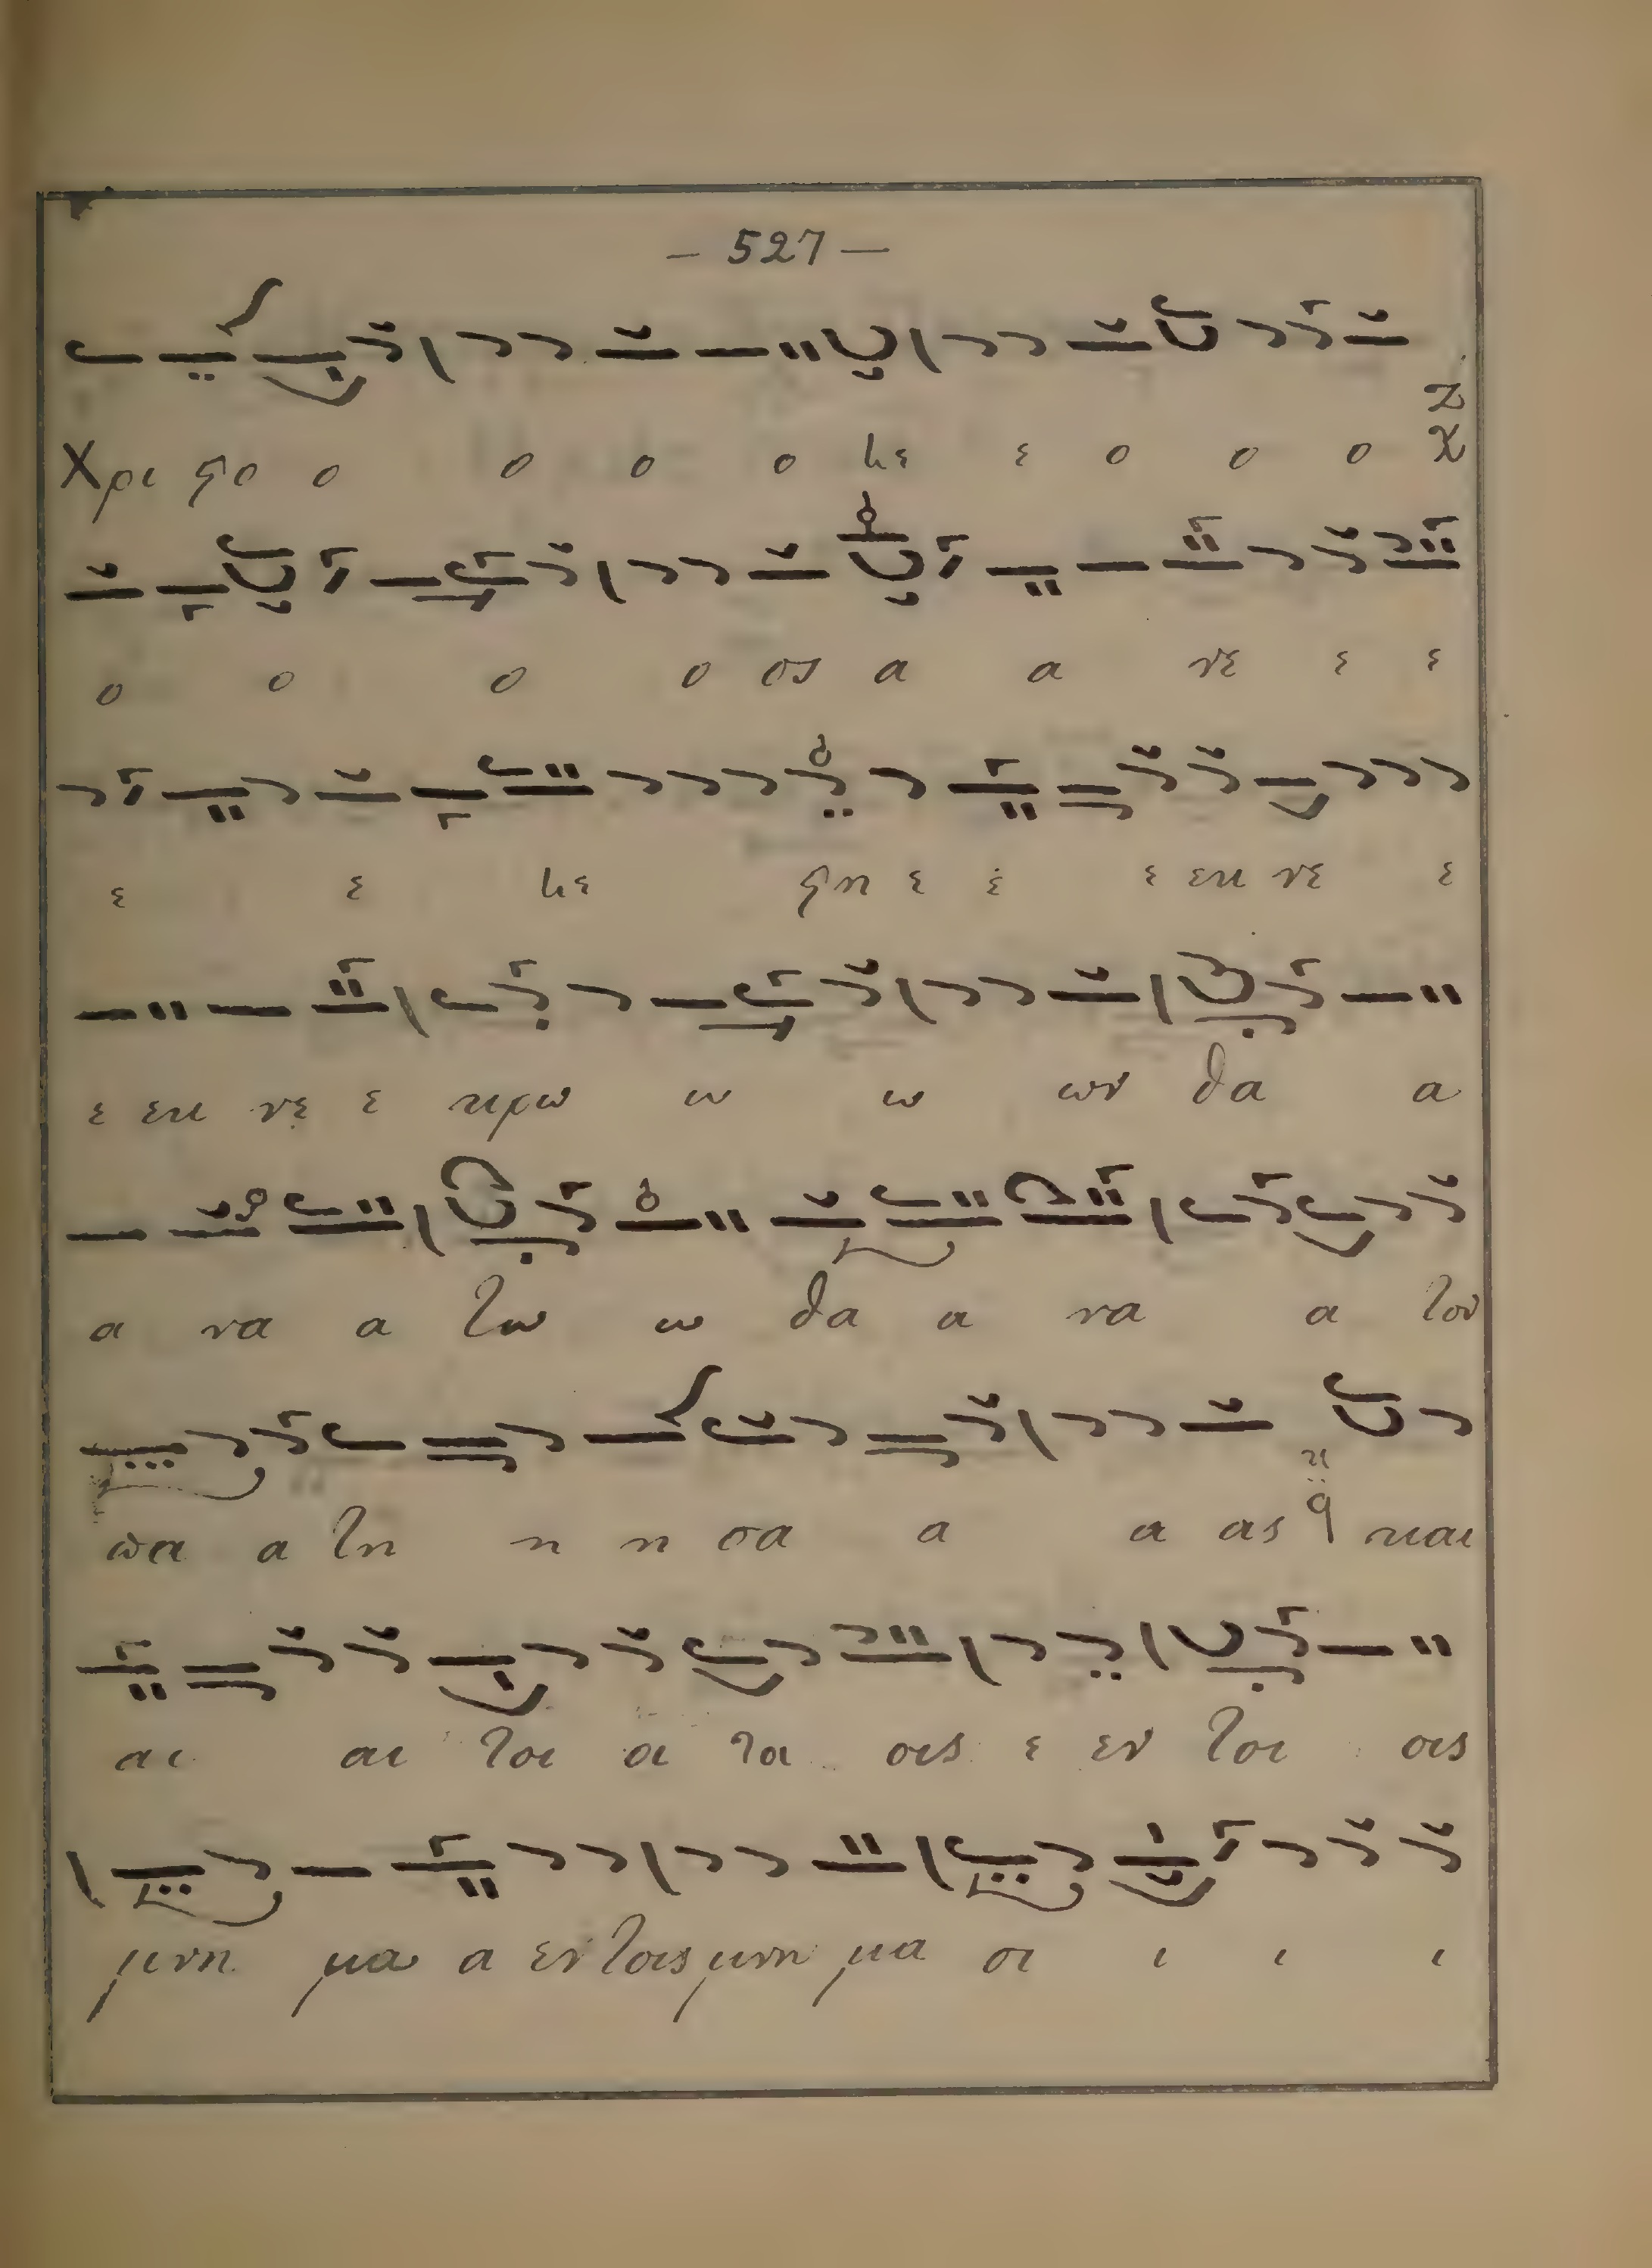 – 527 –
Χρι ϛο ο ο ο ο με ε ο ο ο
ο ο ο ο ος α α νε ε ε
ε ε με ϛη ε ε ε εκ νε ε
ε εκ νε ε κρω ω ω ων θα α
α να α τω ω θα α να α τον
πα α τη η η σα α α ας και
αι αι τοι οι τοι οις ε εν τοι οις
μνη μα α εν τοις μνη μα σι ι ι ι